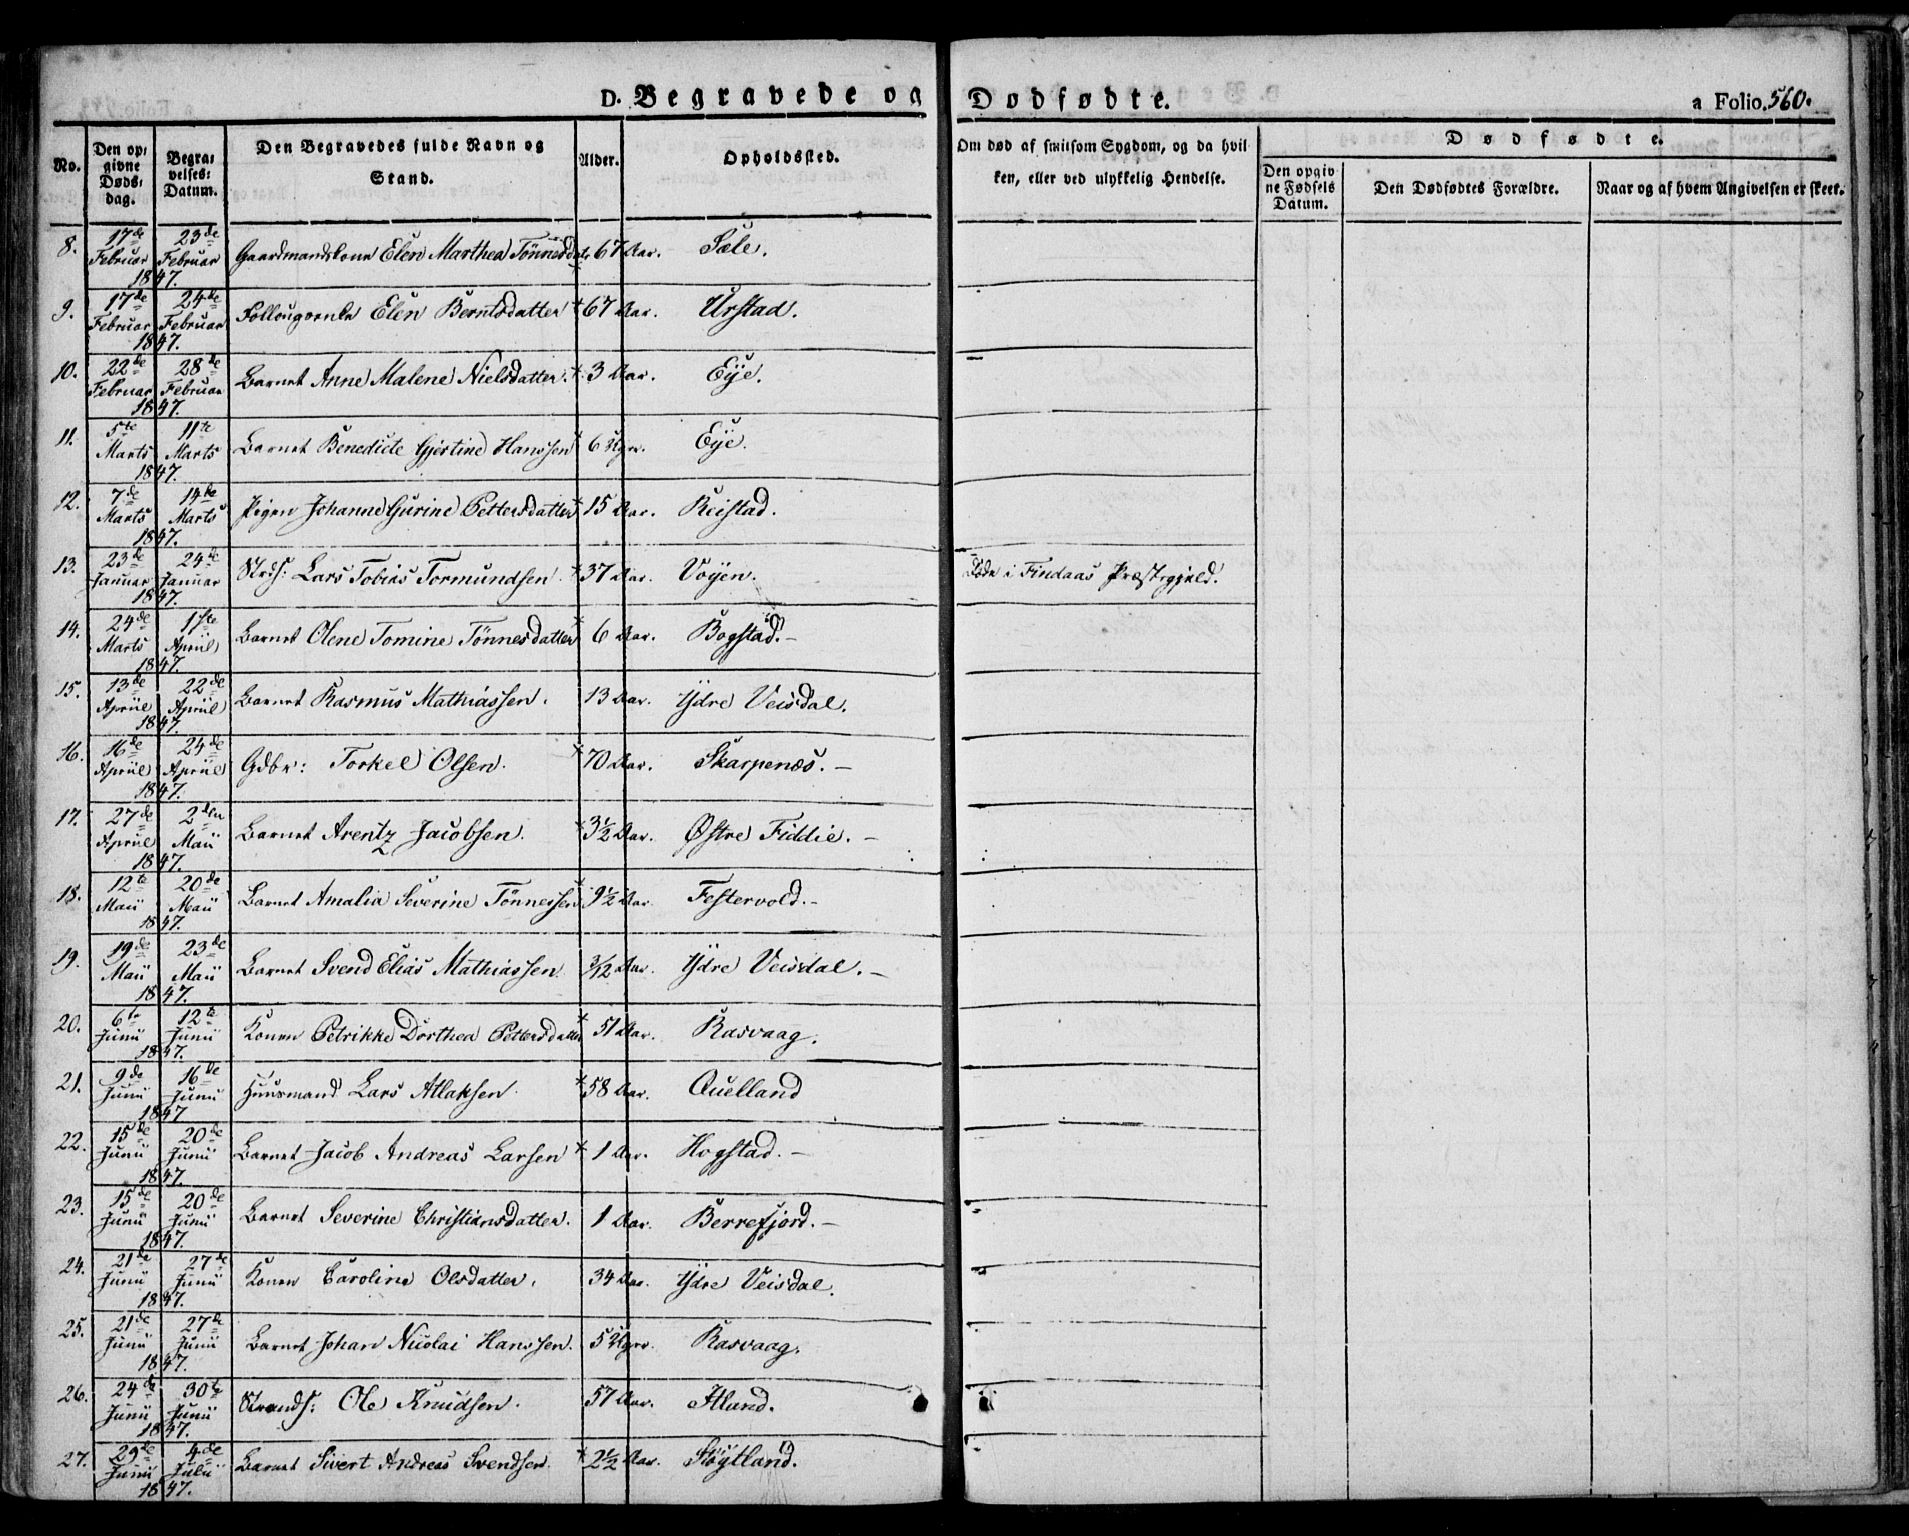 D. Begravede og Dødfødte. a Folio 560.
No. Den opgivne Dødsdag. Begravelses: Datum. Den Begravedes fulde Navn og Stand. Alder. Opholdssted. Om død af smitsom Sygdom, og da hvilken, eller ved ulykkelig Hendelse. Dødfødte. Den opgivne Fødsels Datum. Den Dødfødtes Forældre. Naar og af hvem Angivelsen er skeet.
8. 17de Februar 23de Februar 1847. Gaardmandskone Elen Marthea Tönnesdatr 67 Aar. Sæle.
9. 17de Februar 24de Februar 1847. Elen Berntsdatter 67 Aar. Urstad.
10. 22de Februar 28de Februar 1847. Barnet Anne Malene Nielsdatter. 3 Aar. Eÿe.
11. 5te Marts 11te Marts 1847. Barnet Benedicte Gjertine Hanssen 6 Ugr. Eÿe.
12. 7de Marts 14de Marts 1847. Pigen Johanne Gurine Pettersdatter 15 Aar. Reistad.
13. 23de Januar 24de Januar 1847. Strds: Lars Tobias Tormundsen 37 Aar. Voÿen. Döde i Findaas Præstegjæld.
14. 24de Marts 1ste April 1847. Barnet Olene Tomine Tönnesdatter 6 Aar. Bogstad. -
15. 13de April 22de April 1847. Barnet Rasmus Mathiassen. 13 Aar. Ydre Veisdal.
16. 16de April 24de April 1847. Gdbr: Torkel Olsen. 70 Aar. Skarpenæs. -
17. 27de April 2den Maii 1847. Barnet Arentz Jacobsen. 3½ Aar. Østre Fiddie. -
18. 12te Maii 20de Maii 1847. Barnet Amalia Severine Tönnessen 9½ Aar. Festervold. -
19. 19de Maii 23de Maii 1847. Barnet Svend Elias Mathiassen 3/12 Aar. Ydre Veisdal. -
20. 6te Junii 12te Junii 1847. Konen Petrikke Dorthea Pettersdatter 51 Aar. Rasvaag.
21. 9de Junii 16de Junii 1847 Huusmand Lars Atlaksen. 58 Aar. Quelland
22. 15de Junii 20de Junii 1847. Barnet Jacob Andreas Larsen 1 Aar. Hogstad. -
23. 15de Junii 20de Junii 1847. Barnet Severine Christiansdatter. 1 Aar. Berrefjord. -
24. 21de Junii 27de Junii 1847. Konen Caroline Olsdatter. 34 Aar. Ydre Veisdal.
25. 21de Junii 27de Junii 1847. Barnet Johan Nicolai Hanssen. 5 Ugr. Rasvaag.
26. 24de Junii 30te Junii 1847. Strands: Ole Knudsen. 57 Aar. Aland.
27. 29de Junii 4de Julii 1847. Barnet Sivert Andreas Svendsen. 2½ Aar. Stÿtland.